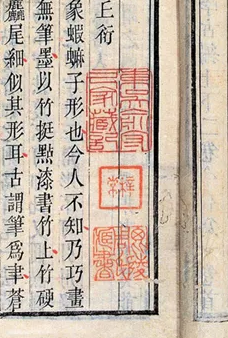 上衍
象蝦蟆子形也今人不知乃巧畫
無筆墨以竹挺點漆書竹上竹硬
麤尾細似其形耳古謂筆爲聿蒼